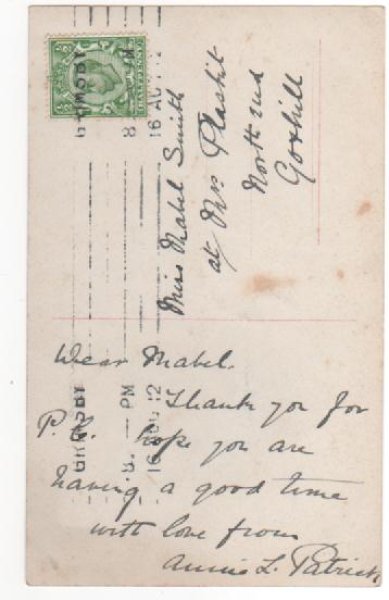 GRIMSBY
8. — PM
16 AUG 12
GRIMSBY
8
16 AU
HALFPENNY
Miss Mabel Smith
at Mrs Plaskitt
North End
Goxhill
Dear Mabel.
Thank you for
P. C. hope you are
having a good time
with love from
Annie L. Patrick